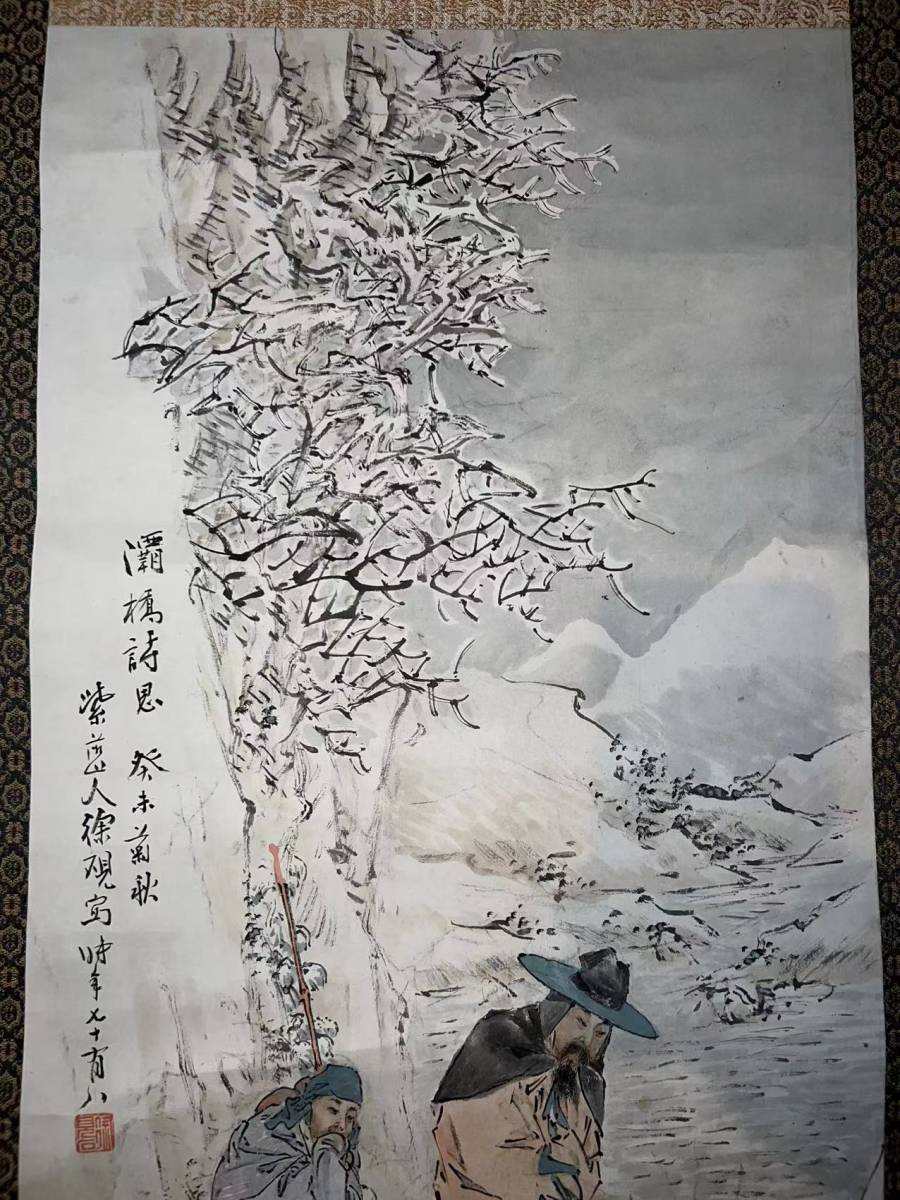 灞橋詩思 癸未菊秋
紫山人徐硯寫 時年七十有八